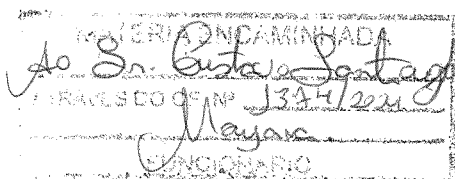 MATÉRIA ENCAMINHADA
Ao Sr. Gustavo Santag
ATRAVÉS DO OF. Nº 1374/2021
Mayara
FUNCIONÁRIO